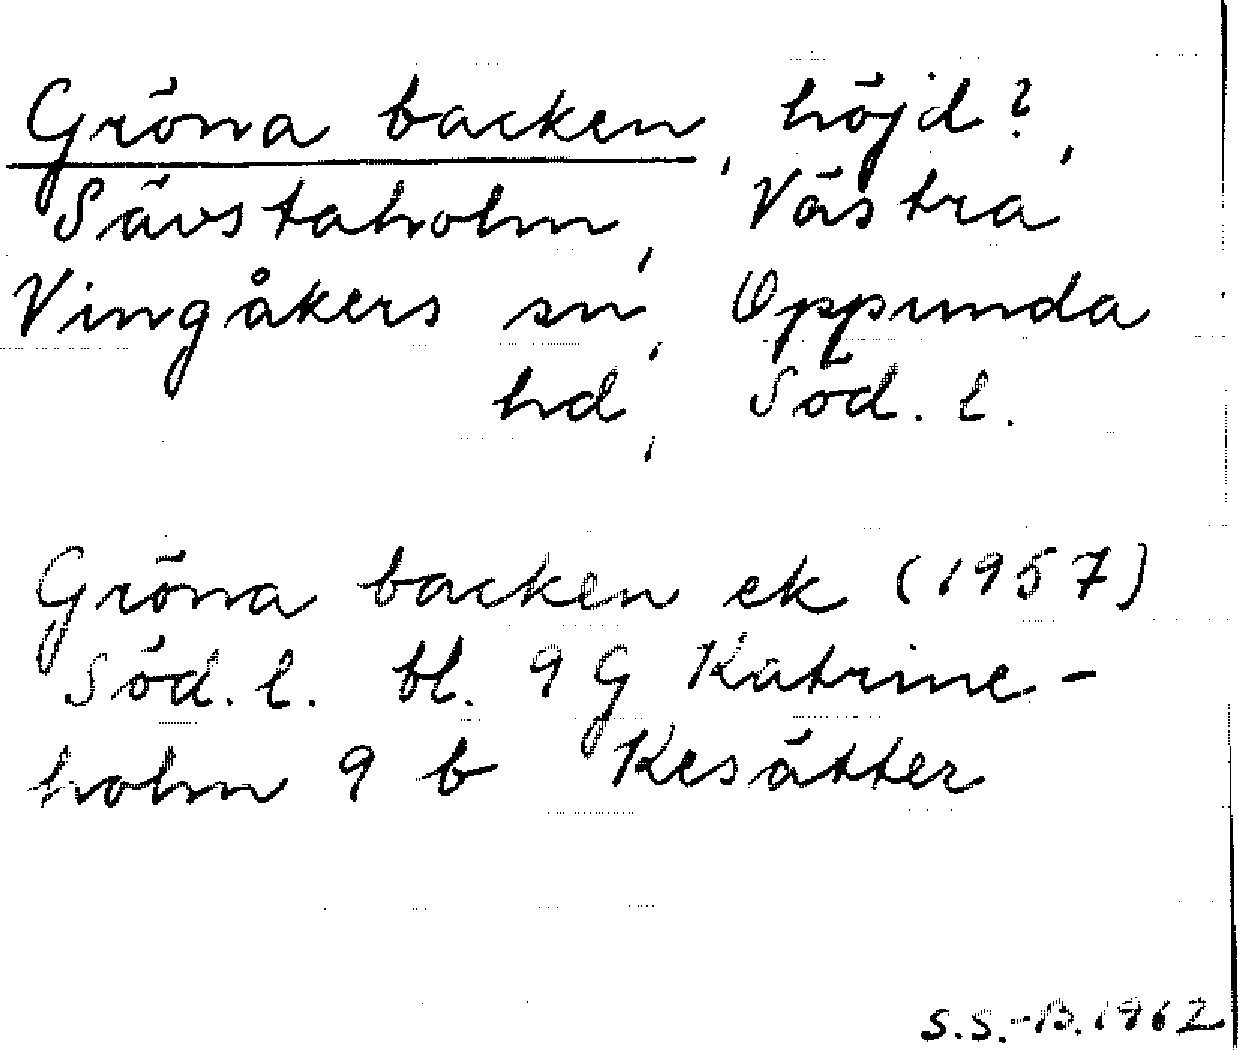 Gröna backen, höjd?,
Sävstaholm, Västra
Vingåkers sn, Oppunda
hd, Söd. l.
Gröna backen ek (1957)
Söd. l. bl. 9 G Katrine-
holm 9 b Kesätter
S.S.-B. 1962